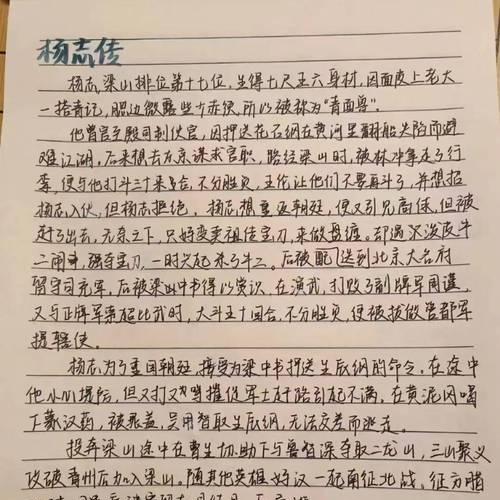 杨志传
杨志,梁山排位第十七位,生得七尺五六身材,因面皮上老大
一搭青记,腮边微露些少赤须,所以被称为“青面兽”。
他曾官至殿司制使官,因押送花石纲在黄河里翻船失陷而避
难江湖,后来想去东京谋求官职,路经梁山时,被林冲拿走了行
李,便与他打斗三十来合,不分胜负,王伦让他们不要再斗了,并想招
杨志入伙,但杨志拒绝。杨志想重返朝廷,便又引见高俅,但被
赶了出去,无奈之下,只好变卖祖传宝刀,来做盘缠。却遇泼皮牛
二闹事,强夺宝刀,一时兴起杀了牛二。后被配送到北京大名府
留守司充军,后被梁中书得以赏识,在演武,打败了副牌军周谨,
又与正牌军索超比武时,大斗五十回合,不分胜负,便被拔做管都军
提辖使。
杨志为了重回朝廷,接受为梁中书押送生辰纲的命令。在途中
他小心堤防,但又打又骂催促军士赶路引起不满,在黄泥冈喝
下蒙汗药,被晁盖,吴用智取生辰纲,无法交差而逃走。
投奔梁山途中在曹正切助下与鲁智深夺取二龙山,三山聚义
攻破青州后加入梁山。随其他英雄好汉一起南征北战,征方腊